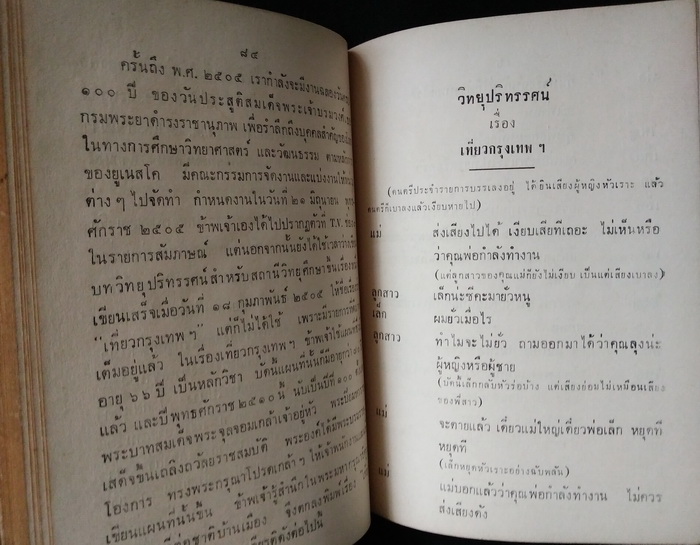 ๘๔
ครั้นถึง พ.ศ. ๒๕๐๕ เรากำลังจะมีงานฉลองวันครบ
๑๐๐ ปี ของวันประสูติสมเด็จพระเจ้าบรมวงศ์เธอ
กรมพระยาดำรงราชานุภาพ เพื่อรำลึกถึงบุคคลสำคัญ
ในทางการศึกษาวิทยาศาสตร์ และวัฒนธรรม ตามหลัก
ของยูเนสโค มีคณะกรรมการจัดงานและแบ่งงานให้
ต่าง ๆ ไปจัดทำ กำหนดงานในวันที่ ๒๑ มิถุนายน พุทธ
ศักราช ๒๕๐๕ ข้าพเจ้าเองได้ไปปรากฏตัวที่ T.V. ช่อง
ในรายการสัมภาษณ์ แต่นอกจากนั้นยังได้ใช้เวลาว่าง
บทวิทยุปริทรรศน์สำหรับสถานีวิทยุศึกษาขึ้นเรื่อง
เขียนเสร็จเมื่อวันที่ ๑๘ กุมภาพันธ์ ๒๕๐๕ ให้ชื่อ
"เที่ยวกรุงเทพ ฯ" แต่ก็ไม่ได้ใช้ เพราะมีรายการ
เต็มอยู่แล้ว ในเรื่องเที่ยวกรุงเทพ ฯ ข้าพเจ้าใช้แผนที่
อายุ ๖๖ ปี เป็นหลักวิชา บัดนี้แผนที่นั้นก็มีอายุ
แล้ว และปีพุทธศักราช ๒๕๑๐ นี้ นับเป็นปีที่ ๑๐๐
พระบาทสมเด็จพระจุลจอมเกล้าเจ้าอยู่หัว
เสด็จขึ้นเถลิงถวัลยราชสมบัติ พระองค์ได้มีพระบรม
โองการ ทรงพระกรุณาโปรดเกล้า ฯ ให้เจ้าพนักงาน
เขียนแผนที่นั้นขึ้น ข้าพเจ้ารู้สำนึกในพระมหากรุณา
ต่อชาติบ้านเมือง จึงตกลงพิมพ์เรื่อง
ดังต่อไปนี้
วิทยุปริทรรศน์
เรื่อง
เที่ยวกรุงเทพ ฯ
(ดนตรีประจำรายการบรรเลงอยู่ ได้ยินเสียงผู้หญิงหัวเราะ แล้ว
ดนตรีก็เบาลงแล้วเงียบหายไป)
แม่ ส่งเสียงไปได้ เงียบเสียทีเถอะ ไม่เห็นหรือ
ว่าคุณพ่อกำลังทำงาน
(แต่ลูกสาวของคุณแม่ก็ยังไม่เงียบ เป็นแต่เสียงเบาลง)
ลูกสาว เล็กน่ะซีคะมายั่วหนู
เล็ก ผมยั่วเมื่อไร
ลูกสาว ทำไมจะไม่ยั่ว ถามออกมาได้ว่าคุณลุงน่ะ
ผู้หญิงหรือผู้ชาย
(บัดนี้เล็กกลับหัวร่อบ้าง แต่เสียงย่อมไม่เหมือนเสียง
ของพี่สาว)
แม่ จะตายแล้ว เดี๋ยวแม่ใหญ่เดี๋ยวพ่อเล็ก หยุดที
หยุดที
(เล็กหยุดหัวเราะอย่างฉับพลัน)
แม่ แม่บอกแล้วว่าคุณพ่อกำลังทำงาน ไม่ควร
ส่งเสียงดัง